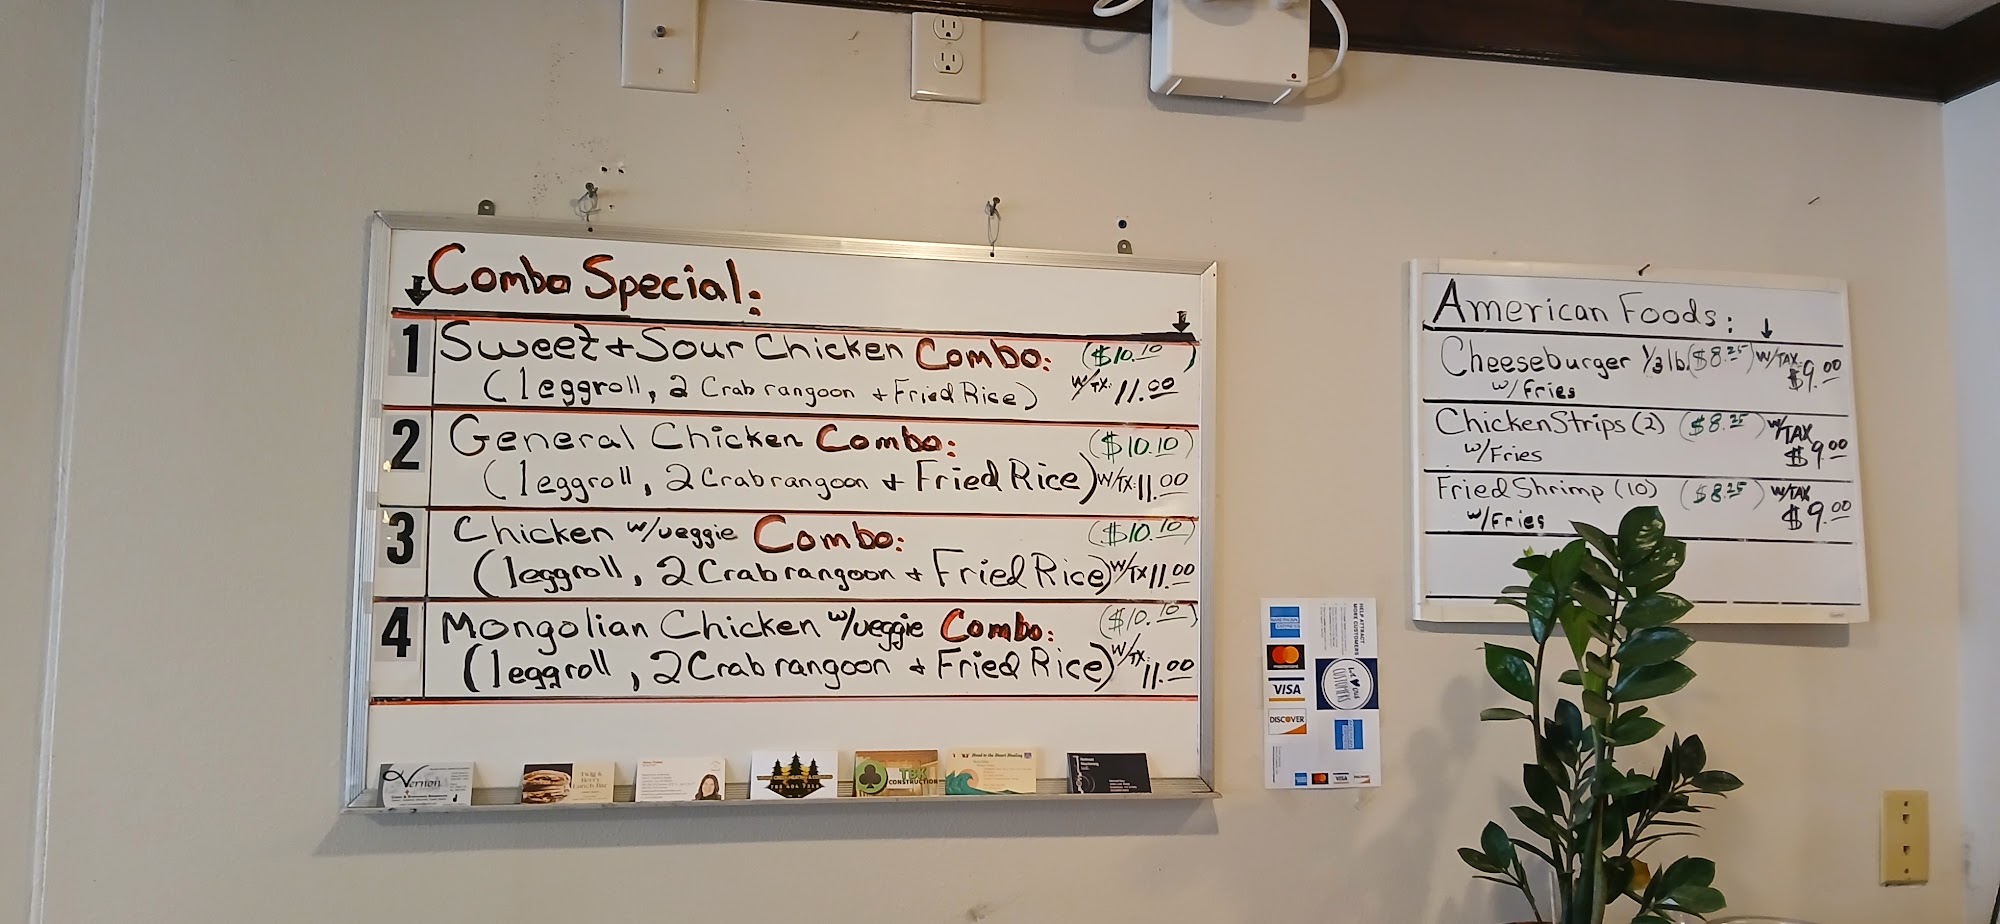 Combo Special:
1 Sweet + Sour Chicken Combo: ($10.10)
(1 eggroll, 2 Crab rangoon + Fried Rice) W/TX: 11.00
2 General Chicken Combo: ($10.10)
(1 eggroll, 2 Crab rangoon + Fried Rice) W/TX: 11.00
3 Chicken w/veggie Combo: ($10.10)
(1 eggroll, 2 Crab rangoon + Fried Rice) W/TX 11.00
4 Mongolian Chicken w/veggie Combo: ($10.10)
(1 eggroll, 2 Crab rangoon + Fried Rice) W/TX: 11.00
Vernon
TBK
CONSTRUCTION
American Foods:
Cheeseburger 1/3 lb. ($8.25) W/TAX: $9.00
w/ Fries
Chicken Strips (2) ($8.25) W/TAX $9.00
w/ Fries
Fried Shrimp (10) ($8.25) W/TAX $9.00
w/ Fries
HELP ATTRACT
MORE CUSTOMERS
VISA
DISCOVER
CUSTOMERS